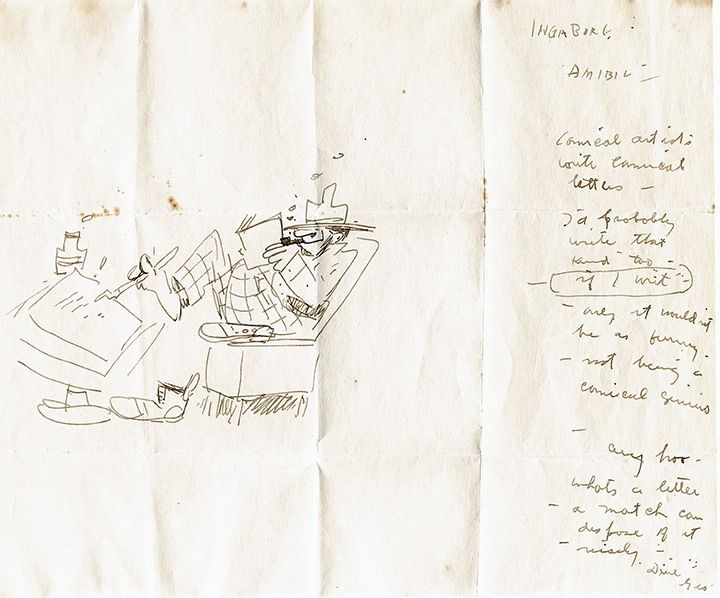 INGABORG.
AMIBIL —
Comical artists
write Comical
letters —
I'd probably
write that
kind too —
— if I writ —
— only it wouldn't
be as funny —
— not being a
comical genius
—
any hoo —
whats a letter
— a match can
dispose of it
— nicely —